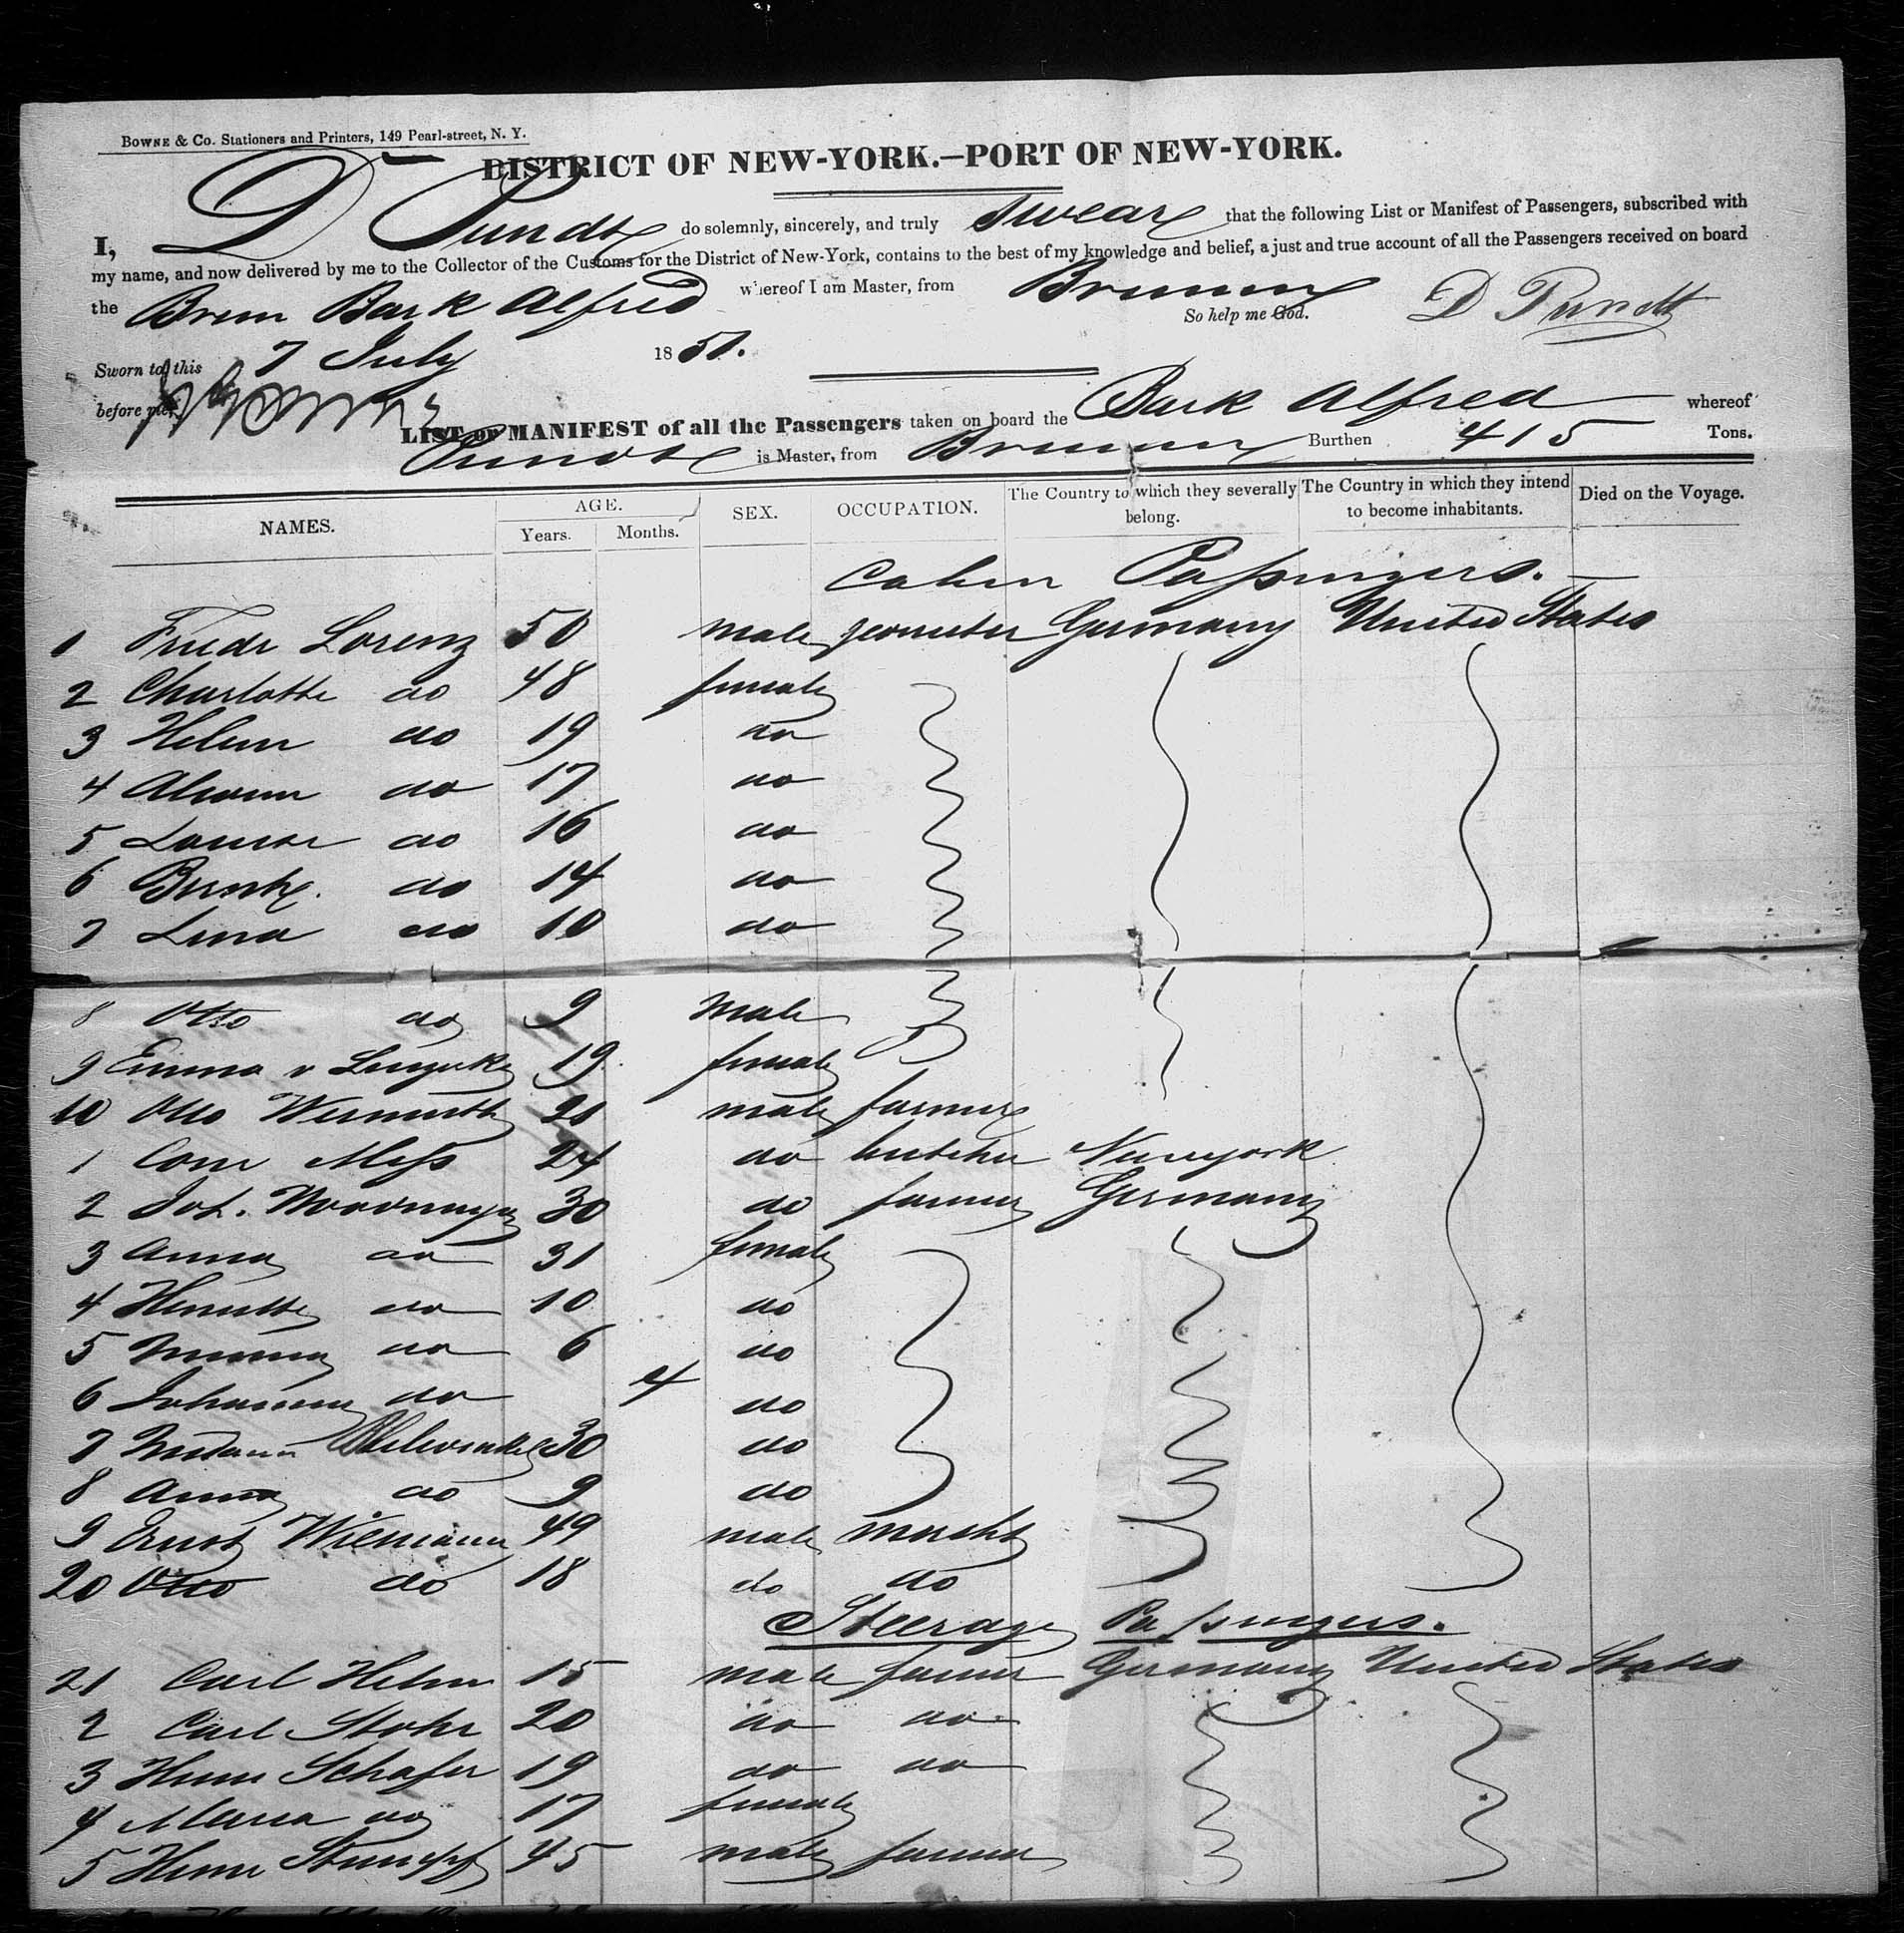 BOWNE & Co. Stationers and Printers, 149 Pearl-street, N. Y.
DISTRICT OF NEW-YORK.—PORT OF NEW-YORK.
I, D Pundt do solemnly, sincerely, and truly swear that the following List or Manifest of Passengers, subscribed with
my name, and now delivered by me to the Collector of the Customs for the District of New-York, contains to the best of my knowledge and belief, a just and true account of all the Passengers received on board
the Brem Bark Alfred whereof I am Master, from Bremen
So help me God. D Pundt
Sworn to this 7 July 1851.
before me,
LIST or MANIFEST of all the Passengers taken on board the Bark Alfred whereof
Pundt is Master, from Bremen Burthen 415 Tons.
NAMES. AGE. Years. Months. SEX. OCCUPATION. The Country to which they severally belong. The Country in which they intend to become inhabitants. Died on the Voyage.
Cabin Passengers.
1 Friedr Lorenz 50 male geometer Germany United States
2 Charlotte do 48 female
3 Helen do 19 do
4 Alwine do 17 do
5 Louise do 16 do
6 do 14 do
7 Lina do 10 do
8 Otto do 9 male
9 Emma v 19 female
10 Otto Wermuth 21 male farmer
1 24 do butcher Newyork
2 Joh. 30 do farmer Germany
3 Anna do 31 female
4 do 10 do
5 do 6 do
6 Johanna do 4 do
7 30 do
8 Anna do 9 do
9 Ernst Wiemann 49 male mercht
20 Otto do 18 do do
Steerage Passengers.
21 Carl Helm 15 male farmer Germany United States
2 Carl Stohr 20 do do
3 Henr Schafer 19 do do
4 Maria do 17 female
5 Henr Stumpf 45 male farmer